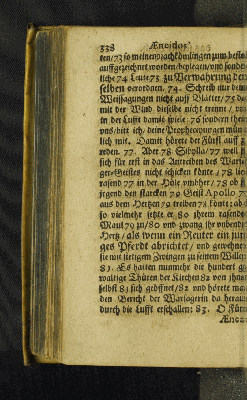 338 Æneidos
ten/73 so meinen nachkömlingen zum besten
auffgezeichnet worden/beylegen/und sonder-
liche 74 Leute 73 zu Verwahrung der-
selben verordnen. 74. Schreib nur deine
Weissagungen nicht auff Blätter/75 da-
mit der Wind dieselbe nicht trenne/
in der Lufft damit spiele: 76 sondern thue
uns/bitt ich/deine Propheceyungen münd-
lich mit. Damit hörete der Fürst auff zu
reden. 77. Aber 78 Sibylla/77 weil
sich für erst in das Antreiben des Warsa-
ger-Geistes nicht schicken konte/78 lieff
rasend 77 in der Höle umbher/78 ob
irgend den starcken 79 Geist Apollo 77
aus dem Hertzen 79 treiben 78 konte: aber
so vielmehr setzte er 80 ihrem rasenden
Maul 79 zu/80 und zwang ihr unbändig
Hertz/als wenn ein Reuter ein jun-
ges Pferdt abrichtet/und gewehnete
sie mit stetigem Zwingen zu seinem Willen.
81. Es hatten nunmehr die hundert ge-
waltige Thüren der Kirchen 82 von ihnen
selbst 81 sich geöffnet/82 und hörete man
den Bericht der Warsagerin da heraus
durch die Lufft erschallen: 83. O Fürst
Ænea